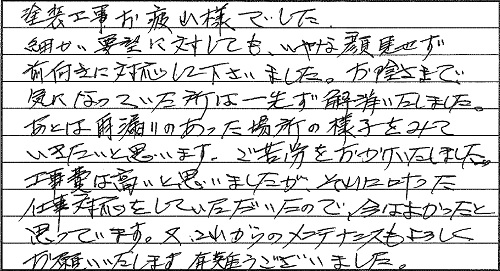 塗装工事お疲れ様でした。
細かい要望に対しても、いやな顔見せず
前向きに対応して下さいました。お陰さまで
気になっていた所は一先ず解消いたしました。
あとは雨漏りのあった場所の様子をみて
いきたいと思います。ご苦労をおかけいたしました。
工事費は高いと思いましたが、それに叶った
仕事対応をしていただいたので、今はよかったと
思っています。又、これからのメンテナンスもよろしく
お願いいたします有難うございました。